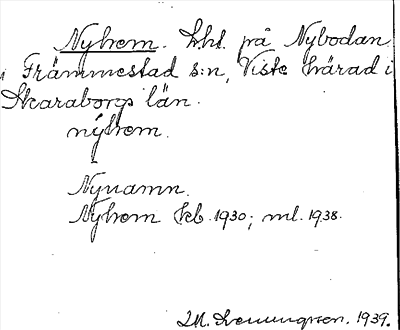 Nyhem. Lht. på Nybodan
i Främmestad s:n, Viste härad i
Skaraborgs län.
nýhem.
Nynamn.
Nyhem kb. 1930; ml. 1938.
1939.